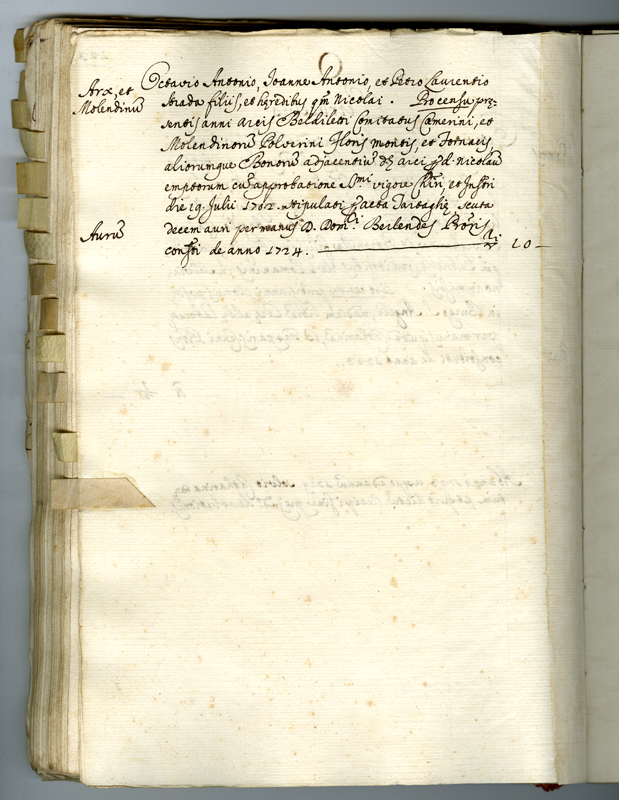 Arx, et
Molendinũ
Octavio Antonio, Ioanne Antonio, et Petro Laurentio
Strada filiis, et hęredibus qm̃ Nicolai. Pro censu prę-
sentis anni Arcis Beldileti Comitatus Camerini, et
Molendinorũ Polverini, Floris montis, et Fornacis,
aliorumque Bonorũ adjacentiũ dę arci p d. Nicolaũ
emptorum cũ approbatione SS.mi vigore Chiri, et Instri
die 19. Julii 1702. stipulati p acta Tartaglię scuta
Aurũ
decem auri per manus D. Dom.ci Berlendes Proris
constri de anno 1724. 10